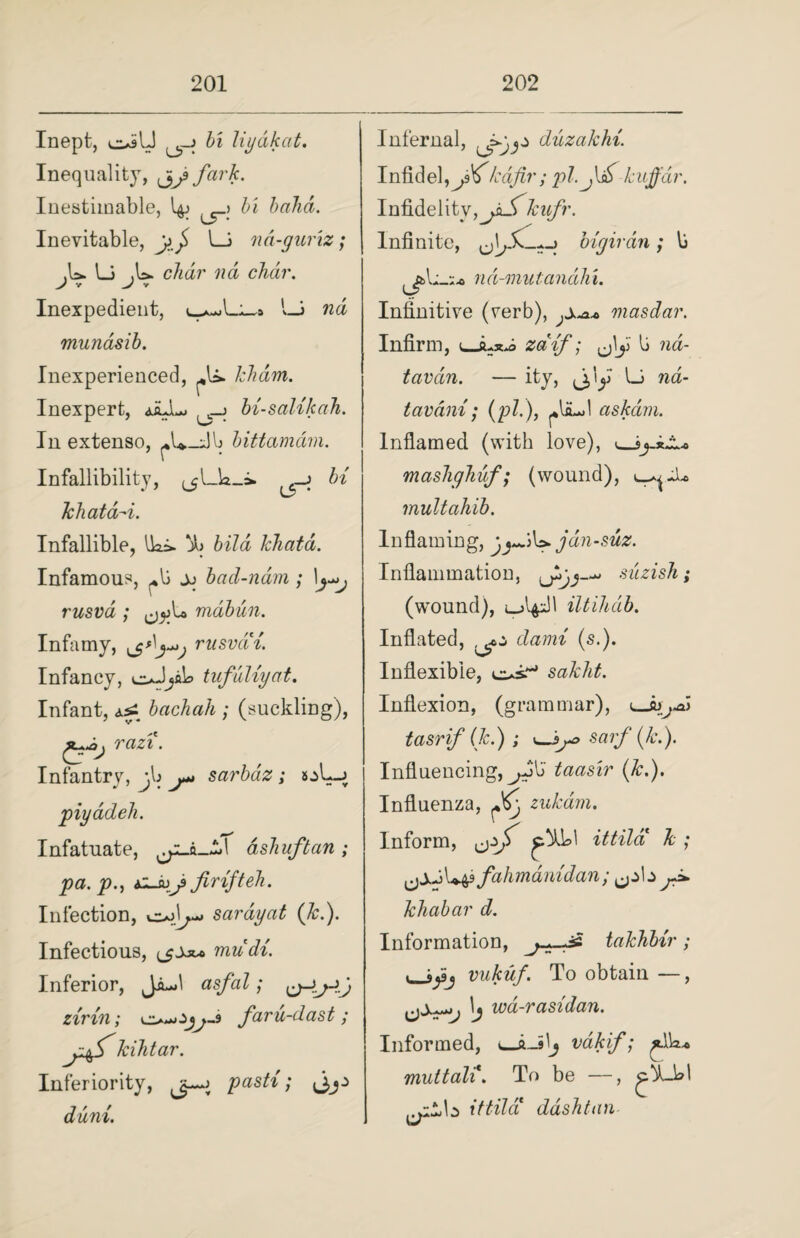 201
202
Inept, بی لیاقت bí liyákat.
Inequality, فرق fark.
Inestimable, بی بها bí bahá.
Inevitable, نا گریز ná-guríz;
چار نا چار chár ná chár.
Inexpedient, نا مناسب ná
munásib.
Inexperienced, خام khám.
Inexpert, بی سلیقه bí-salíkah.
In extenso, بالتمام bittamám.
Infallibility, بی خطای bí
khatá-i.
Infallible, بلا خطا bilá khatá.
Infamous, بد نام bad-nám; رسوا
rusvá; مابون mábún.
Infamy, رسوائی rusvá'í.
Infancy, طفولیت tufúlíyat.
Infant, بچه bachah; (suckling),
رضیع razí'.
Infantry, سر باز sarbáz; پیاده
piyádeh.
Infatuate, آشفتن áshuftan;
pa. p., فریفته firífteh.
Infection, سرایت saráyat (k.).
Infectious, معدی mu'dí.
Inferior, اسفل asfal; زیرین
zírín; فرودست farú-dast;
کهتر kihtar.
Inferiority, پستی pastí; دونی
dúní.
Infernal, دوزخی dúzakhí.
Infidel, کافر káfir; pl. کفار kuffár.
Infidelity, کفر kufr.
Infinite, بیکران bígirán; نا
متناهی ná-mutanáhí.
Infinitive (verb), مصدر masdar.
Infirm, ضعیف za'íf; نا توان ná-
taván. — ity, نا توانی ná-
tavání; (pl.), اسقام askám.
Inflamed (with love), مشغوف
mashghúf; (wound), ملتهب
multahib.
Inflaming, جانسوز ján-súz.
Inflammation, سوزش súzish;
(wound), التهاب iltiháb.
Inflated, دمی damí (s.).
Inflexible, سخت sakht.
Inflexion, (grammar), تصریف
tasríf (k.); صرف sarf (k.).
Influencing, تاثیر taasír (k.).
Influenza, زکام zukám.
Inform, اطلاع کردن ittilá' k;
فهمانیدن fahmánídan; خبر دادن
khabar d.
Information, تخبیر takhbír;
وقوف vukúf. To obtain —,
وا رسیدن wá-rasídan.
Informed, واقف vákif; مطلع
muttali'. To be —, اطلاع
داشتن ittilá' dáshtan